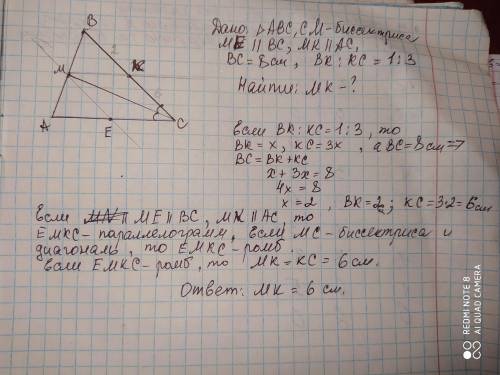 B
2
M
K
6
A
E
C
Дано: △ABC, CM - биссектриса,
ME || BC, MK || AC,
BC = 8 см, BK : KC = 1 : 3
Найти: MK - ?
Если BK : KC = 1 : 3, то
BK = x, KC = 3x, а BC = 8 см =>
BC = BK + KC
x + 3x = 8
4x = 8
x = 2, BK = 2; KC = 3·2 = 6 см
Если ME || BC, MK || AC, то
EMKC - параллелограмм, если MC - биссектриса и
диагональ, то EMKC - ромб.
Если EMKC - ромб, то MK = KC = 6 см.
Ответ: MK = 6 см.
REDMI NOTE 8
AI QUAD CAMERA